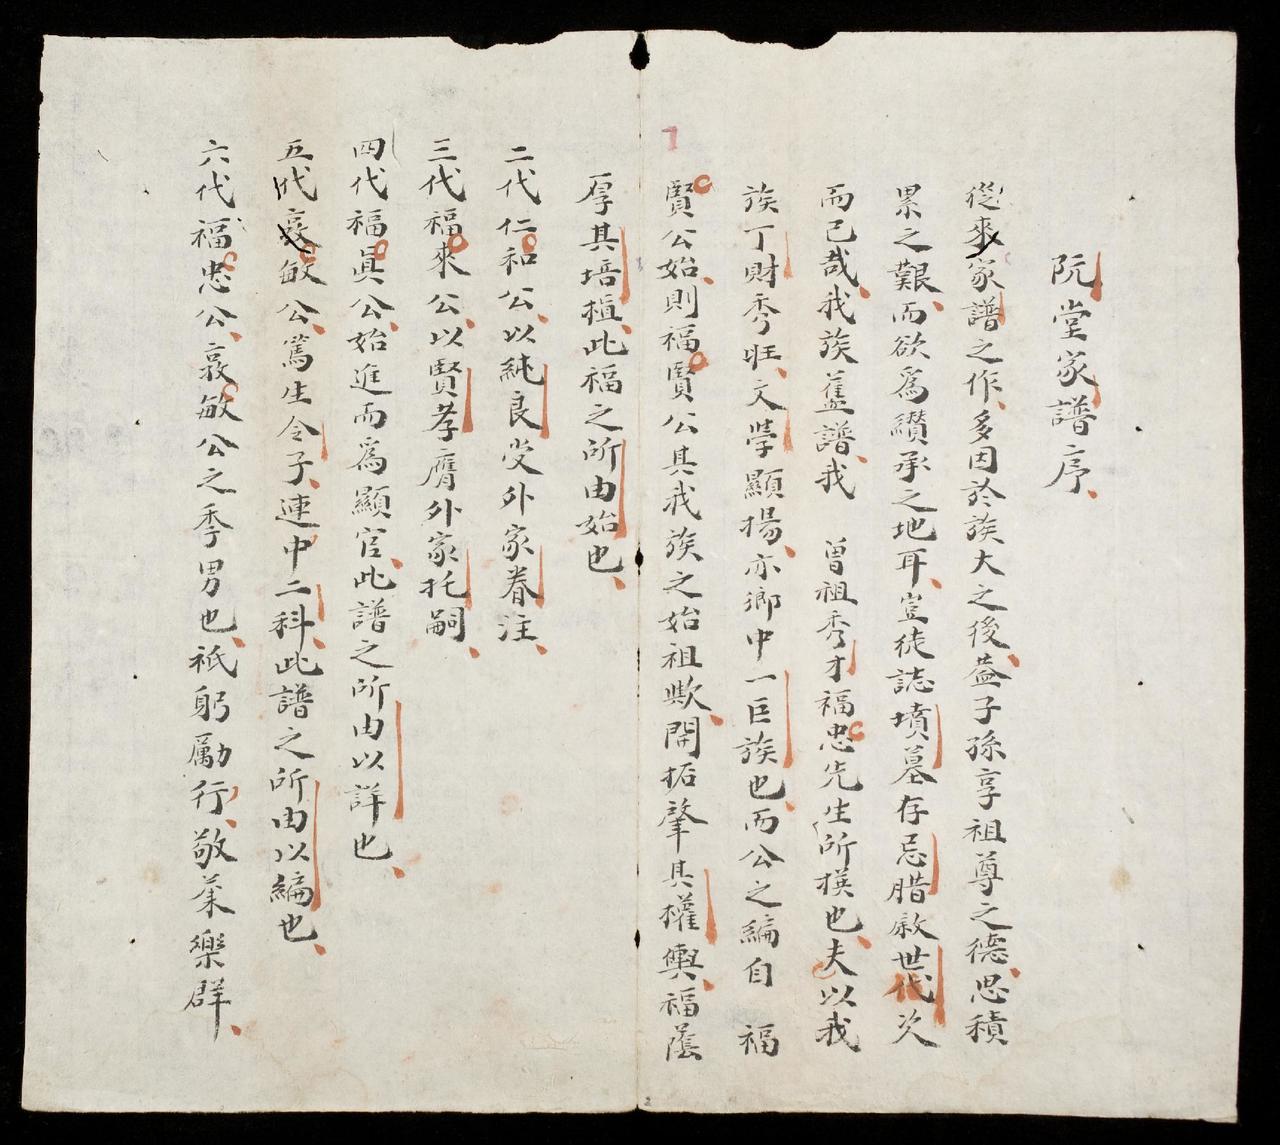 阮堂家譜序
從來家譜之作多因於族大之後蓋子孫享祖尊之德思積
累之艱而欲爲纘承之地耳豈徒誌墳墓存忌腊敘世代次
而已哉我族舊譜我 曾祖秀才福忠先生所撰也夫以我
族丁財秀旺文學顯揚亦鄉中一巨族也而公之編自 福
賢公始則福賢公其我族之始祖歟開拓肇其權輿福蔭
厚其培植此福之所由始也
二代仁和公以純良受外家眷注
三代福來公以賢孝膺外家托嗣
四代福眞公始進而爲顯官此譜之所由以詳也
五代敦敏公篤生令子連中二科此譜之所由以編也
六代福忠公敦敏公之季男也祇躬勵行敬業樂群